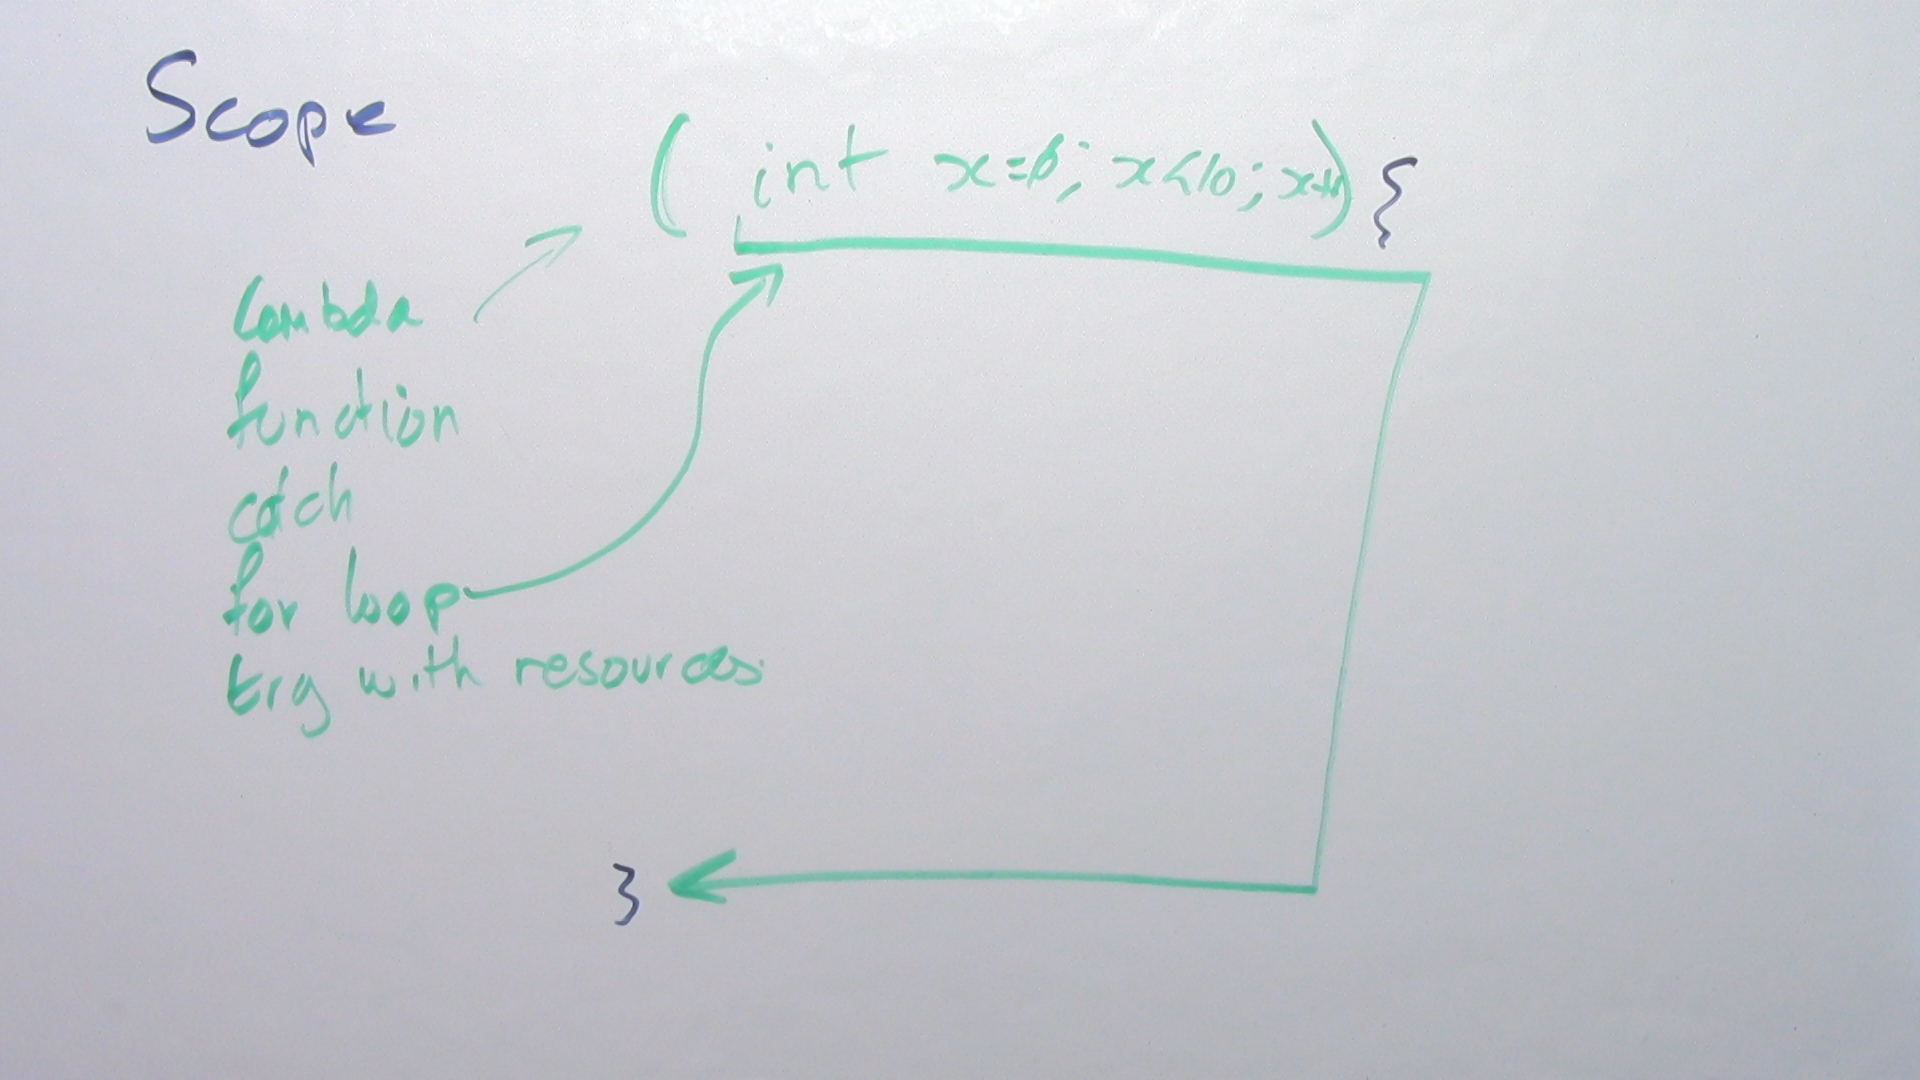 Scope
( int x=0; x<10; x++) {
lambda
function
catch
for loop
try with resources
}